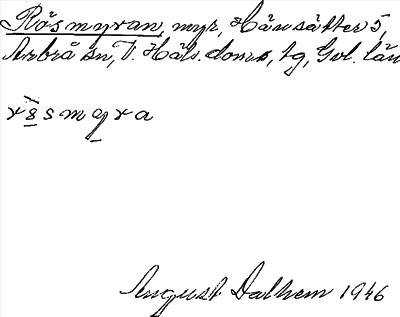 Råsmyran, myr, Hänsätter 5,
Arbrå sn, V. Häls. doms, tg, Gvl. län
August Dalhem 1946